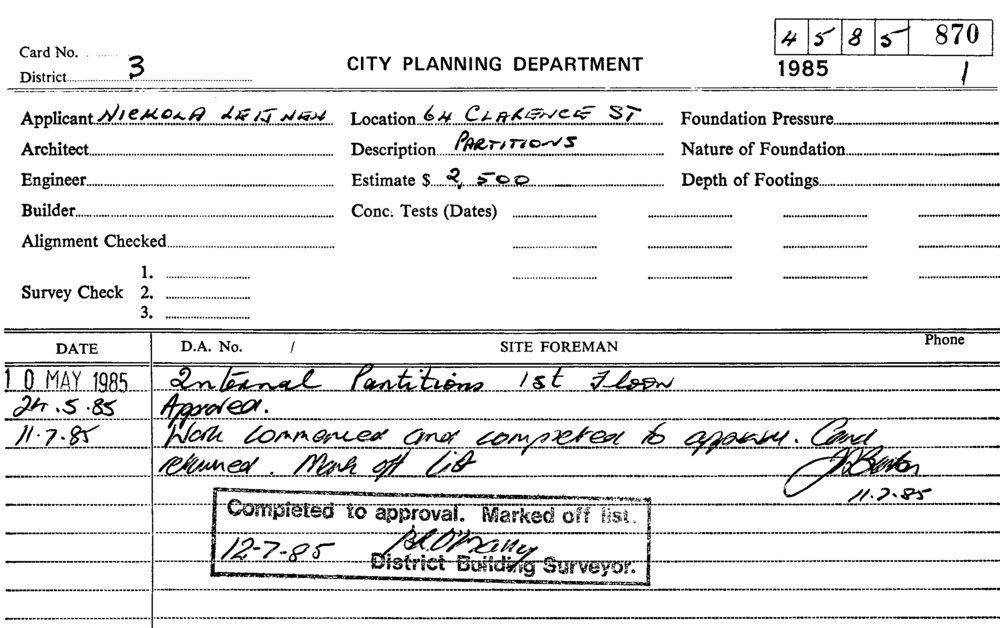 4 5 8 5 870
Card No.
District 3
CITY PLANNING DEPARTMENT
1985
1
Applicant NICHOLA
Location 64 CLARENCE ST
Foundation Pressure
Architect
Description PARTITIONS
Nature of Foundation
Engineer
Estimate $ 2,500
Depth of Footings
Builder
Conc. Tests (Dates)
Alignment Checked
1.
Survey Check 2.
3.
DATE D.A. No. / SITE FOREMAN Phone
10 MAY 1985 Internal Partitions 1st Floor
24.5.85 Approved.
11.7.85 Work commenced and completed to approval. Card
returned. Mark off list
11.7.85
Completed to approval. Marked off list.
12-7-85
District Building Surveyor.